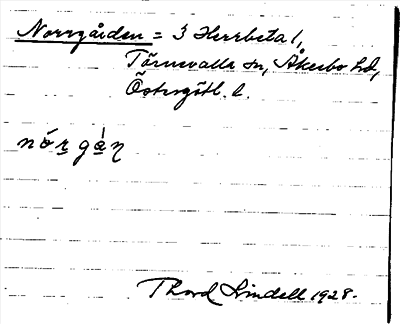 Norrgården = 3 Herrbeta 1,
Törnevalla sn, Åkerbo hd,
Östergötl. l.
nórgà̱ɳ
Thord Lindell 1928.